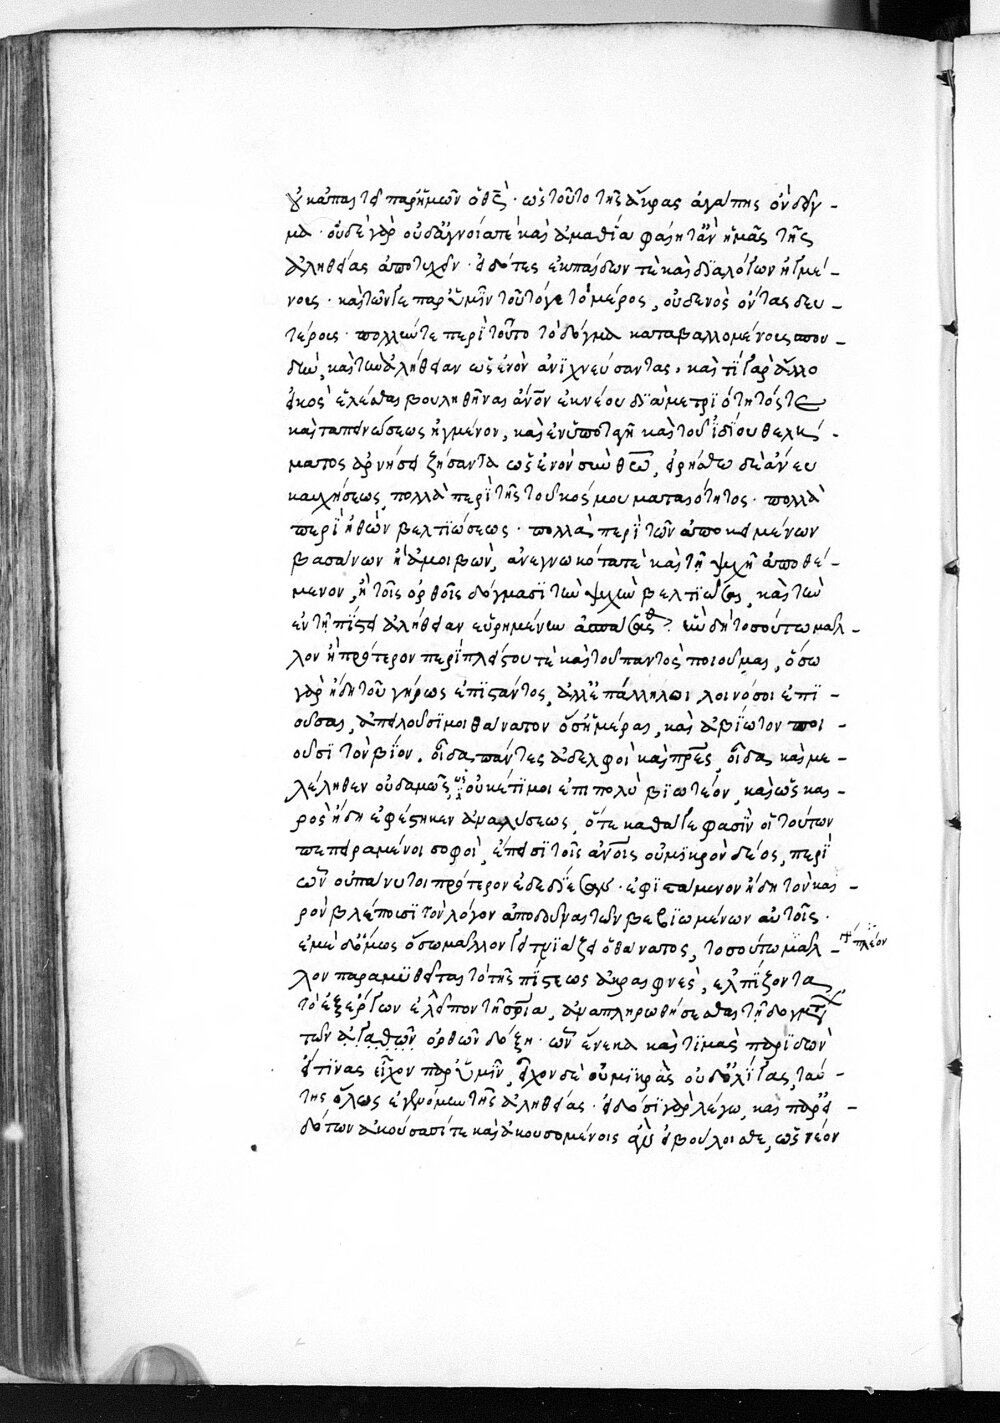 καὶ τοῦτο τῆς ἄκρας ἀγάπης ὂν δεῖγ-
μα· οὐδὲ γὰρ οὐδ' ἀγνοίᾳ τὲ καὶ ἀμαθίᾳ φαίητ' ἂν ἡμᾶς τῆς
ἀληθείας ἀποτυχεῖν· εἰδότες ἐκ παίδων τὲ καὶ διαλόγων ἠγμέ-
νοις· καὶ τῶν γε παρ' ὑμῖν τοῦτό γε τὸ μέρος, οὐδενὸς ὄντας δευ-
τέροις· πολλήν τε περὶ τοῦτο τὸ δόγμα καταβαλλομένοις σπου-
δήν, καὶ τὴν ἀλήθειαν ὡς ἐνὸν ἀνιχνεύσαντας, καὶ τί γὰρ ἄλλο
εἰκὸς ἑλέσθαι βουληθῆναι ἄνον ἐκ νέου διὰ μετριότητός τε
καὶ ταπεινώσεως ἠγμένον, καὶ ἐν ὑποταγῇ καὶ τοῦ ἰδίου θελή-
ματος ἀρνήσει ζήσαντα ὡς ἐνὸν σὺν θεῷ, εἰρήσθω δὲ ἄνευ
καυχήσεως, πολλὰ περὶ τῆς τοῦ κόσμου ματαιότητος· πολλὰ
περὶ ἠθῶν βελτιώσεως· πολλὰ περὶ τῶν ἀποκειμένων
βασάνων ἢ ἀμοιβῶν, ἀνεγνωκότα τὲ καὶ τῇ ψυχῇ ἀποθέ-
μενον, ἢ τοῖς ὀρθοῖς δόγμασι τὴν ψυχὴν βελτιῶσαι, καὶ τὴν
ἐν τῇ πίστει ἀλήθειαν εὑρημένην ἀσπάσασθαι; ἣν δὴ τοσούτῳ μᾶλ-
λον ἢ πρότερον περὶ πλείστου τὲ καὶ τοῦ παντὸς ποιοῦμαι, ὅσῳ
γὰρ ἤδη τοῦ γήρως ἐπιστάντος, ἀλλεπάλληλοι λοι νόσοι ἐπι-
οῦσαι, ἀπειλοῦσί μοι θάνατον ὁσημέραι, καὶ ἀβίωτον ποι-
οῦσι τὸν βίον. οἶδα πάντες ἀδελφοὶ καὶ πρες, οἶδα καὶ με-
λέληθεν οὐδαμῶς, ὡς οὐκέτι μοι ἐπιπολὺ βιωτέον, καὶ ὡς και-
ρὸς ἤδη ἐφέστηκεν ἀναλύσεως, ὅτε καθά γε φασὶν οἱ τούτων
πεπειραμένοι σοφοί, ἔπεισι τοῖς ἀνοις οὐ μικρὸν δέος, περὶ
ὧν οὐ πάνυ τοι πρότερον ἐδεδίεσαν· ἐφιστάμενον ἤδη τὸν και-
ρὸν βλέπουσι τὸν λόγον ἀποδοῦναι τῶν βεβιωμένων αὐτοῖς·
ἐμὲ δ' ὅμως ὅσῳ μᾶλλον ἐγγίζει ὁ θάνατος, τοσούτῳ μᾶλ-
πλέον
λον παραμυθεῖται τὸ τῆς πίστεως ἀκραιφνές, ἐλπίζοντα
τὸ ἐξ ἔργων ἐλλεῖπον τῇ σρία, ἀναπληρωθήσεσθαι τῇ δογμάτων
τῶν ἀγαθῶν ὀρθῶν δόξῃ· ὧν ἕνεκα καὶ τιμὰς παριδὼν
εἴ τινας εἶχον παρ' ὑμῖν, εἶχον δὲ οὐ μικρὰς οὐδ' ὀλίγας, ταύ-
της ὅλως ἐγενόμην τῆς ἀληθείας· εἰδόσι γὰρ λέγω, καὶ παρ' εἰ-
δότων ἀκούσασί τε καὶ ἀκουσομένοις ἂν εἰ βούλοισθε, ὡς νέον